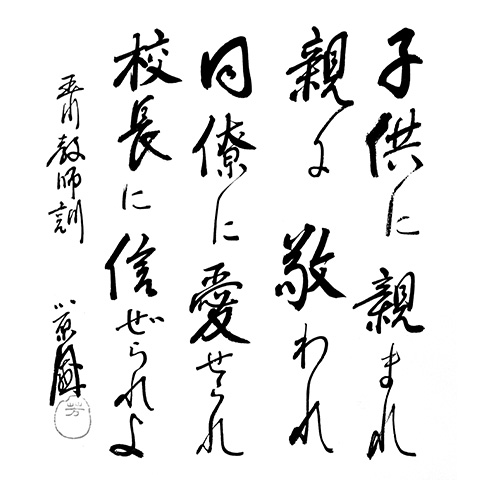 子供に親まれ
親に敬われ
同僚に愛せられ
校長に信ぜられよ
教師訓